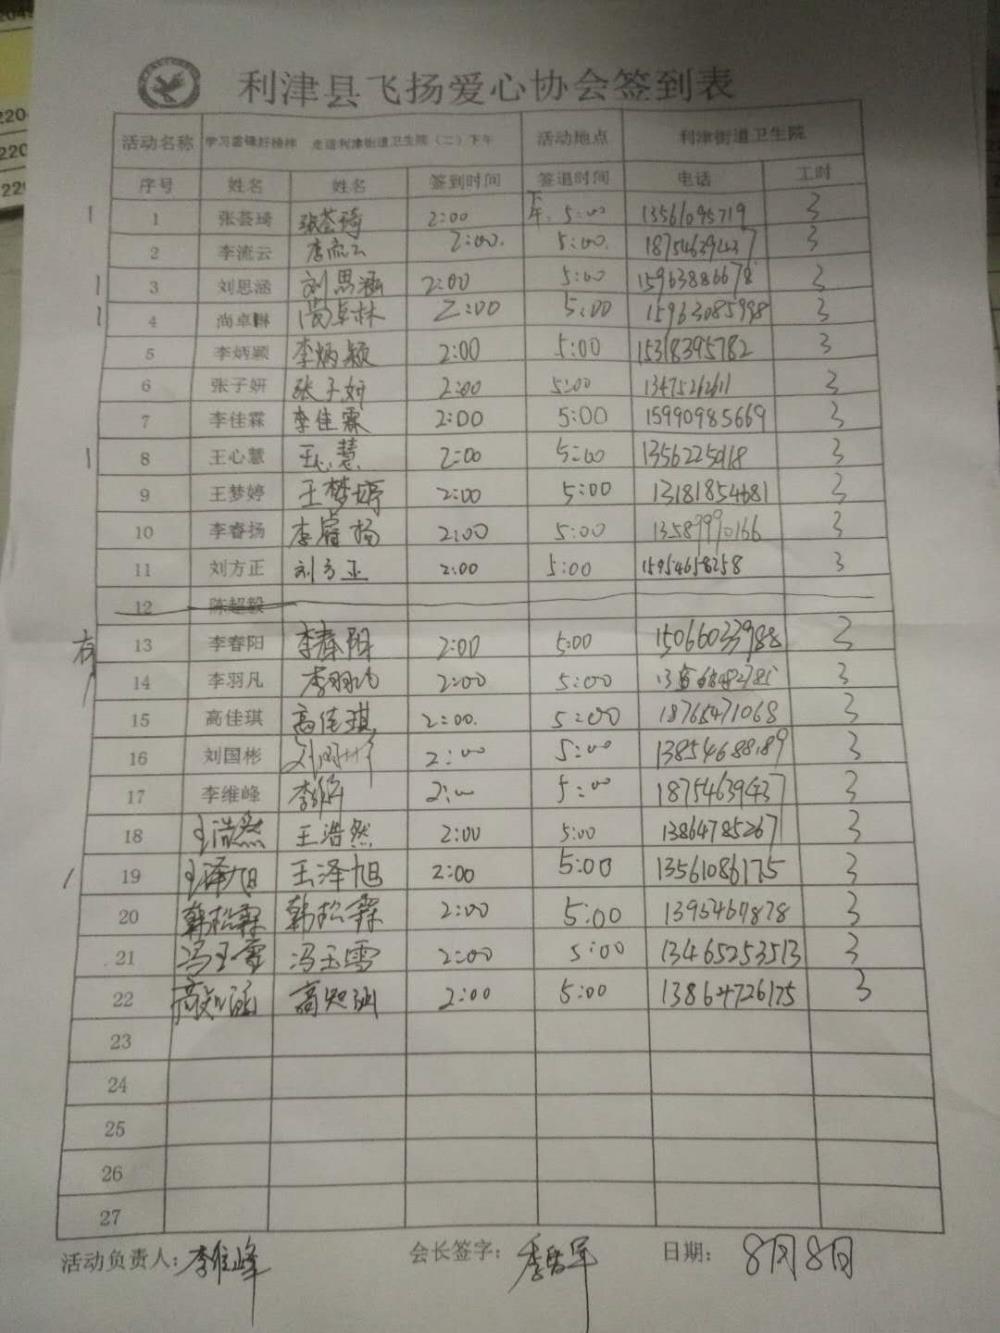 利津县飞扬爱心协会签到表
活动名称 学习雷锋好榜样 走进利津街道卫生院（二）下午 活动地点 利津街道卫生院
序号 姓名 姓名 签到时间 签退时间 电话 工时
1 张荟琦 张荟琦 2:00 下午 5:00 13561095719 3
2 李流云 李流云 2:00. 5:00. 18754639437 3
3 刘思涵 刘思涵 2:00 5:00 15963886678 3
4 尚卓琳 尚卓林 2:00 5:00 15963085998 3
5 李炳颖 李炳颖 2:00 5:00 15318395782 3
6 张子妍 张子妍 2:00 5:00 13475262611 3
7 李佳霖 李佳霖 2:00 5:00 15990985669 3
8 王心慧 王心慧 2:00 5:00 3
9 王梦婷 王梦婷 2:00 5:00 13181854681 3
10 李睿扬 李睿扬 2:00 5:00 13589990166 3
11 刘方正 刘方正 2:00 5:00 15954658258 3
12 陈超毅
13 李春阳 李春阳 2:00 5:00 15066033988 3
14 李羽凡 李羽凡 2:00 5:00 3
15 高佳琪 高佳琪 2:00. 5:00 18765471068 3
16 刘国彬 刘国彬 2:00 5:00 13854688189 3
17 李维峰 李维峰 2:00 5:00 18754639437 3
18 王浩然 王浩然 2:00 5:00 13864785267 3
19 王泽旭 王泽旭 2:00 5:00 13561086175 3
20 韩松霖 韩松霖 2:00 5:00 3
21 冯玉雪 冯玉雪 2:00 5:00 13465253513 3
22 高知涵 高知涵 2:00 5:00 13864726175 3
23
24
25
26
27
活动负责人：李维峰 会长签字： 日期： 8月8日